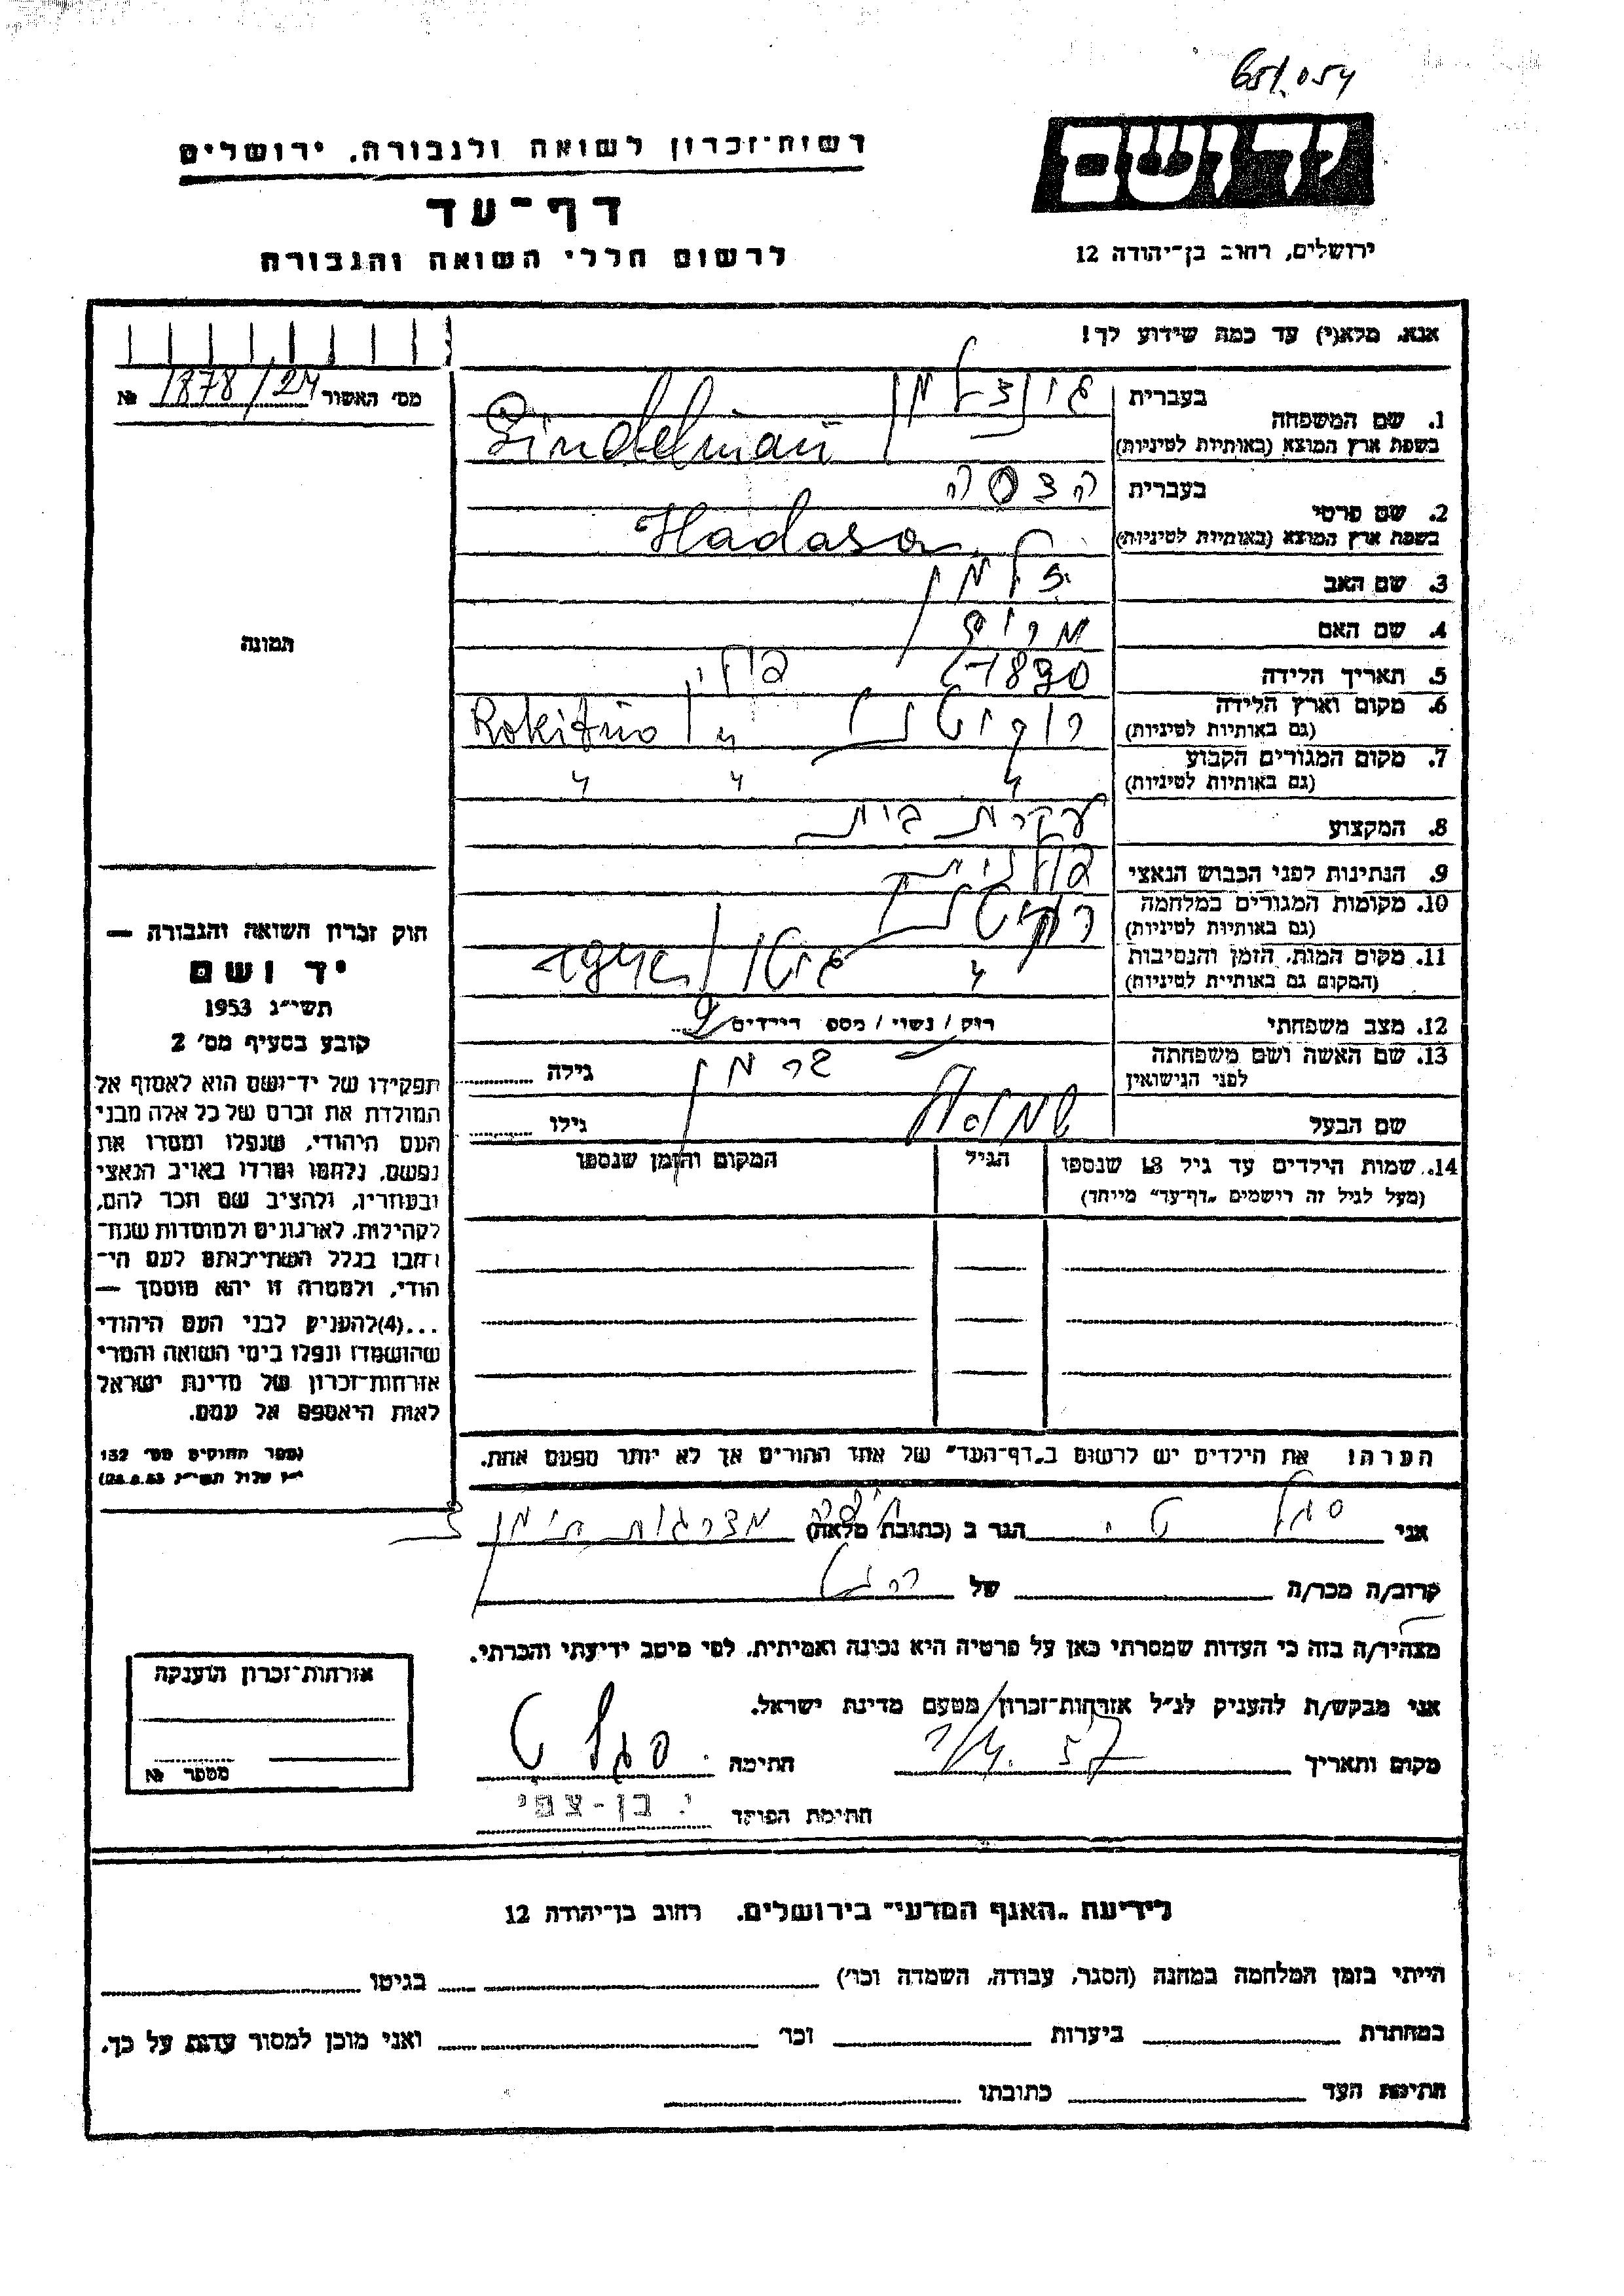 651.054
יד ושם
רשות־זכרון לשואה ולגבורה. ירושלים
דף־עד
לרשום חללי השואה והגבורה
ירושלים, רחוב בן־יהודה 12
אנא. מלא(י) עד כמה שידוע לך!
מס׳ האשור 1878/24 №
1. שם המשפחה
בעברית
בשפת ארץ המוצא (באותיות לטיניות)
2. שם פרטי
בעברית הדסה
בשפת ארץ המוצא (באותיות לטיניות) Hadasa
3. שם האב זלמן
4. שם האם מרים
5. תאריך הלידה 1890
6. מקום וארץ הלידה פולין
(גם באותיות לטיניות) רוקיטנו Rokitno
7. מקום המגורים הקבוע
(גם באותיות לטיניות) " " "
8. המקצוע עקרת בית
9. הנתינות לפני הכבוש הנאצי פולנית
10. מקומות המגורים במלחמה רוקיטנו
(גם באותיות לטיניות)
11. מקום המות. הזמן והנסיבות
(המקום גם באותיית לטיניות) "
12. מצב משפחתי רוק / נשוי / מספ הילדים
13. שם האשה ושם משפחתה
לפני הנישואין גילה
שם הבעל גילו
14. שמות הילדים עד גיל 18 שנספו
(מעל לגיל זה רישמים „דף־עד״ מייחד)
הגיל
המקום והזמן שנספו
הערה! את הילדים יש לרשום ב„דף־העד״ של אחד ההורים אך לא יותר מפעם אחת.
תמונה
חוק זכרון השואה והגבורה —
יד ושם
תשי״ג 1953
קובע בסעיף מס׳ 2
תפקידו של יד־ושם הוא לאסוף אל
המולדת את זכרם של כל אלה מבני
העם היהודי, שנפלו ומסרו את
נפשם, נלחמו ומרדו באויב הנאצי
ובעוזריו, ולהציב שם וזכר להם,
לקהילות, לארגונים ולמוסדות שנח־
רבו בגלל השתייכותם לעם הי־
הודי, ולמטרה זו יהא מוסמך —
...(4)להעניק לבני העם היהודי
שהושמדו ונפלו בימי השואה והמרי
אזרחות־זכרון של מדינת ישראל
לאות היאספם אל עמם.
(ספר החוקים מס׳ 132
י״ז אלול תשי״ג 28.8.53)
אני סגל ט. הגר ב (כתובת מלאה) חיפה מדרגות תימן
קרוב/ה מכר/ה של
מצהיר/ה בזה כי העדות שמסרתי כאן על פרטיה היא נכונה ואמיתית. לפי מיטב ידיעתי והכרתי.
אני מבקש/ת להעניק לנ״ל אזרחות־זכרון מטעם מדינת ישראל.
מקום ותאריך חתימה סגל ט
חתימת הפוקד י. בן-צפי
אזרחות־זכרון הוענקה
מספר №
לידיעת „האגף המדעי״ בירושלים. רחוב בן־יהודה 12
הייתי בזמן המלחמה במחנה (הסגר, עבודה, השמדה וכו׳) בגיטו
במחתרת ביערות וכו׳ ואני מוכן למסור עדות על כך.
חתימת העד כתובתו